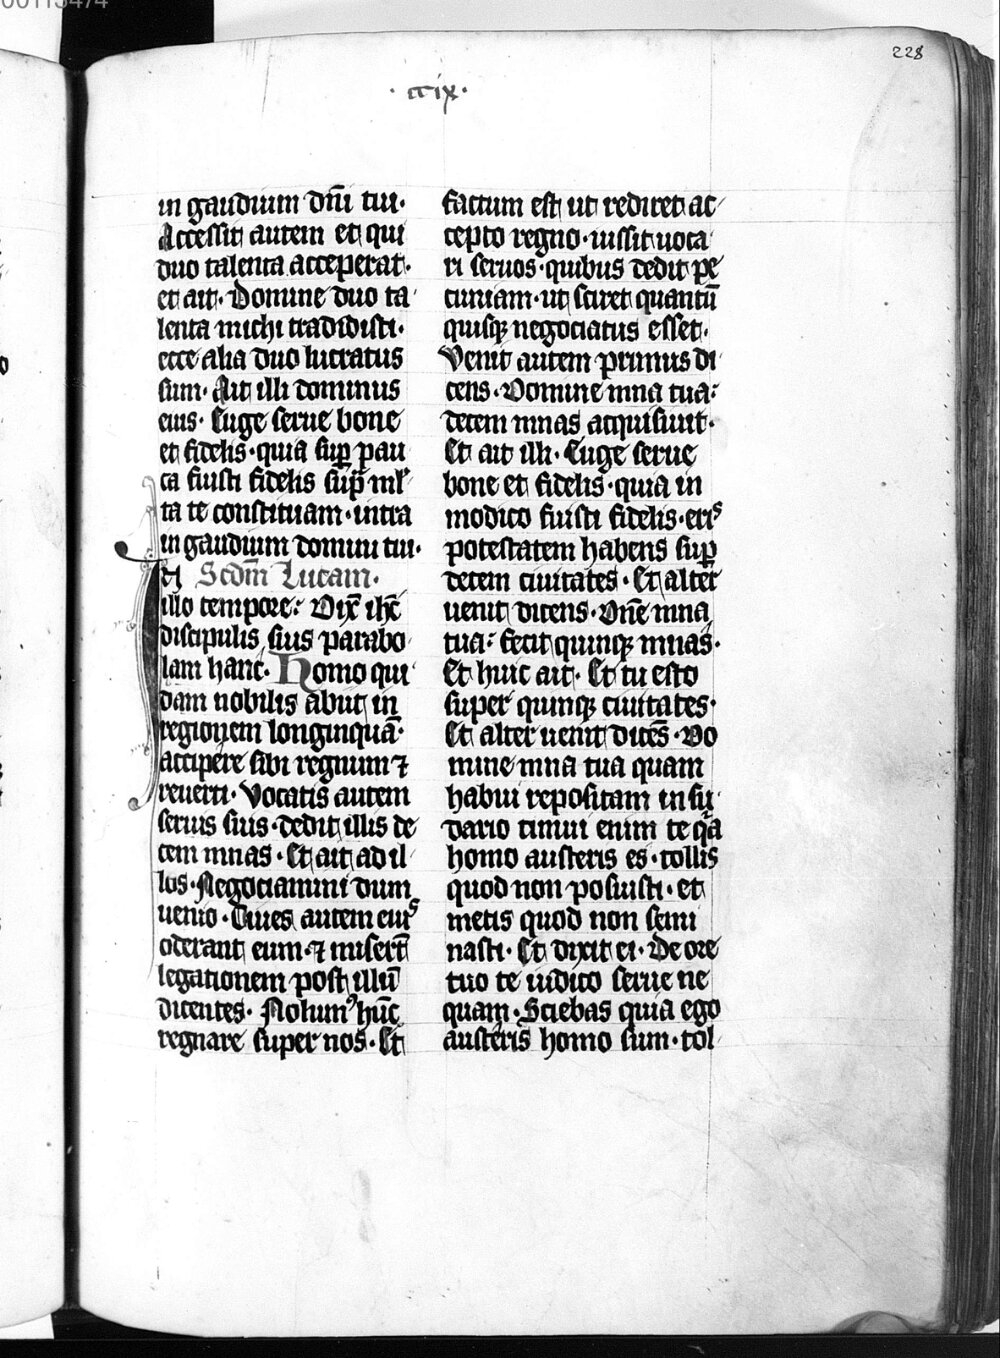 00113474
228
·ccix·
in gaudium dn̄i tui·
Accessit autem et qui
duo talenta acceperat·
et ait· Domine duo ta
lenta michi tradidisti·
ecce alia duo lucratus
sum· Ait illi dominus
eius· Euge serue bone
et fidelis· quia suꝑ pau
ca fuisti fidelis sup̄ ml̄
ta te constituam· intra
in gaudium domini tui·
Scdm̄ Lucam·
In illo tempore: Dix̄ ih̄c
discipulis suis parabo
lam hanc· Homo qui
dam nobilis abiit in
regionem longinquā·
accipere sibi regnum ⁊
reuerti· Vocatis autem
seruis suis· dedit illis de
cem mnas· Et ait ad il
los· Negociamini dum
uenio· Ciues autem eius
oderant eum· ⁊ miserūt
legationem post illū
dicentes· Nolumꝰ hūc
regnare super nos· Et
factum est ut rediret ac
cepto regno· iussit uoca
ri seruos· quibus dedit pe
cuniam· ut sciret quantū
quisqꝫ negociatus esset·
Venit autem primus di
cens· Domine mna tua:
decem mnas acquisiuit·
Et ait illi· Euge serue
bone et fidelis· quia in
modico fuisti fidelis· eris
potestatem habens suꝑ
decem ciuitates· Et alter
uenit dicens· Dn̄e mna
tua: fecit quinqꝫ mnas·
Et huic ait· Et tu esto
super quinqꝫ ciuitates·
Et alter uenit dicēs· Do
mine mna tua quam
habui repositam in su
dario timui enim te qa
homo austeris es· tollis
quod non posuisti· et
metis quod non semi
nasti· Et dixit ei· De ore
tuo te iudico serue ne
quam· Sciebas quia ego
austeris homo sum· tol